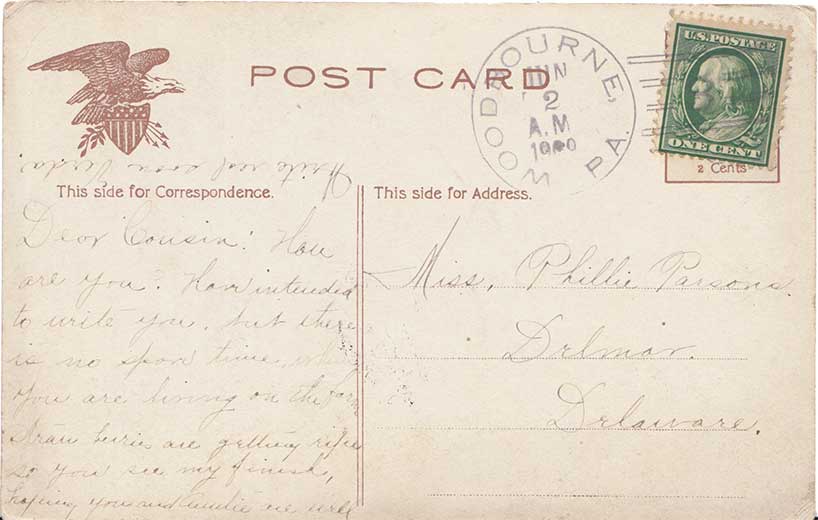 POST CARD
WOODBOURNE, PA.
JUN
2
A.M
U.S. POSTAGE
ONE CENT
2 Cents
Write real soon Verda
This side for Correspondence.
This side for Address.
Dear Cousin: How
are you? Have intended
to write you, but there
is no spare time, when
you are living on the farm
Straw berries are getting ripe
so you see my finish,
hoping you and Auntie are well
Miss, Phillie Parsons.
Delmar.
Delaware.